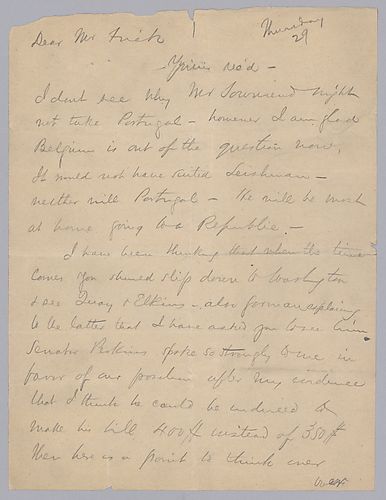 Thursday
29
Dear Mr Frick
Yours rec'd –
I don't see why Mr Townsend might
not take Portugal – however I am glad
Belgium is out of the question now.
It would not have suited Leishman –
neither will Portugal – He will be much
at home going to a Republic. –
I have been thinking that when the time
comes you should slip down to Washington
& see Quay & Elkins – also Gorman explaining
to the latter that I have asked you to see him.
Senator Perkins spoke so strongly to me in
favor of our position after my evidence
that I think he could be induced to
make his bill 400 ft instead of 350 ft
then here is a point to think over